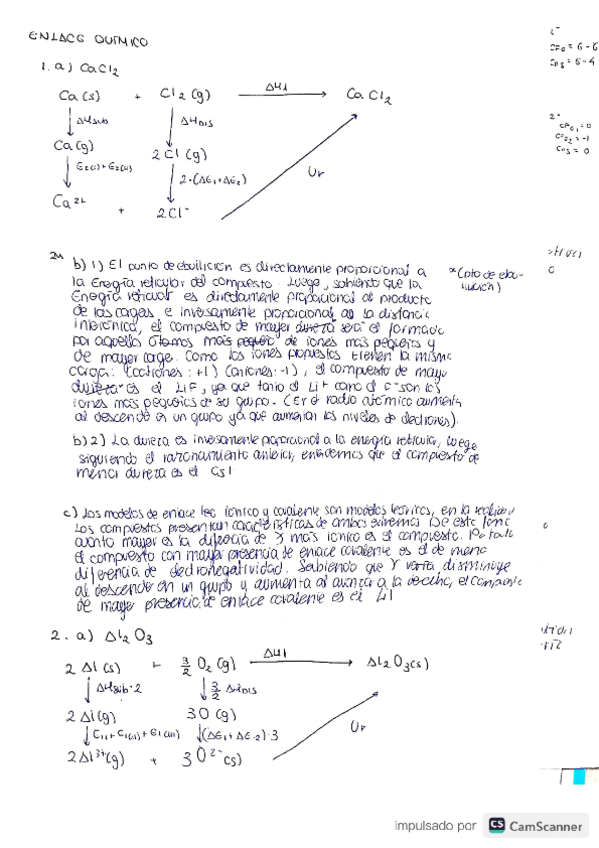 ENLACE QUÍMICO
1. a) CaCl2
Ca(s) + Cl2(g) ΔH1 CaCl2
ΔHsub ΔHDIS
Ca(g) 2Cl(g)
2·(ΔE1+ΔE2) Ur
Ca2+ + 2Cl-
b) 1) El punto de ebullición es directamente proporcional a
la Energía reticular del compuesto. Luego, sabiendo que la
Energía reticular es directamente proporcional al producto
de las cargas e inversamente proporcional a la distancia
interiónica, el compuesto de mayor dureza será el formado
por aquellos átomos más de iones más pequeños y
de mayor carga. Como los iones propuestos tienen la misma
carga: (cationes: +1) (aniones: -1), el compuesto de mayor
dureza es el LiF, ya que tanto el Li+ como el F- son los
iones más pequeños de su grupo. (Er el radio atómico aumenta
al descender en un grupo ya que aumentan los niveles de electrones).
*(pto de ebu-
llición)
b) 2) La dureza es inversamente proporcional a la energía reticular, luego
siguiendo el razonamiento anterior, entendemos que el compuesto de
menor dureza es el CsI
c) Los modelos de enlace iónico y covalente son modelos teóricos, en la realidad
los compuestos presentan características de ambos extremos. De esta forma
cuanto mayor es la diferencia de más iónico es el compuesto. Por tanto
el compuesto con mayor presencia de enlace covalente es el de menor
diferencia de electronegatividad. Sabiendo que disminuye
al descender en un grupo y aumenta al avanzar a la derecha, el compuesto
de mayor presencia de enlace covalente es el LiI
2. a) Al2O3
2 Al(s) + 3/2 O2(g) ΔH1 Al2O3(s)
ΔHsub·2 3/2 ΔHDIS
2 Al(g) 3O(g)
(ΔE1+ΔE2)·3 Ur
2Al3+(g) + 3O2-(s)
impulsado por CS CamScanner